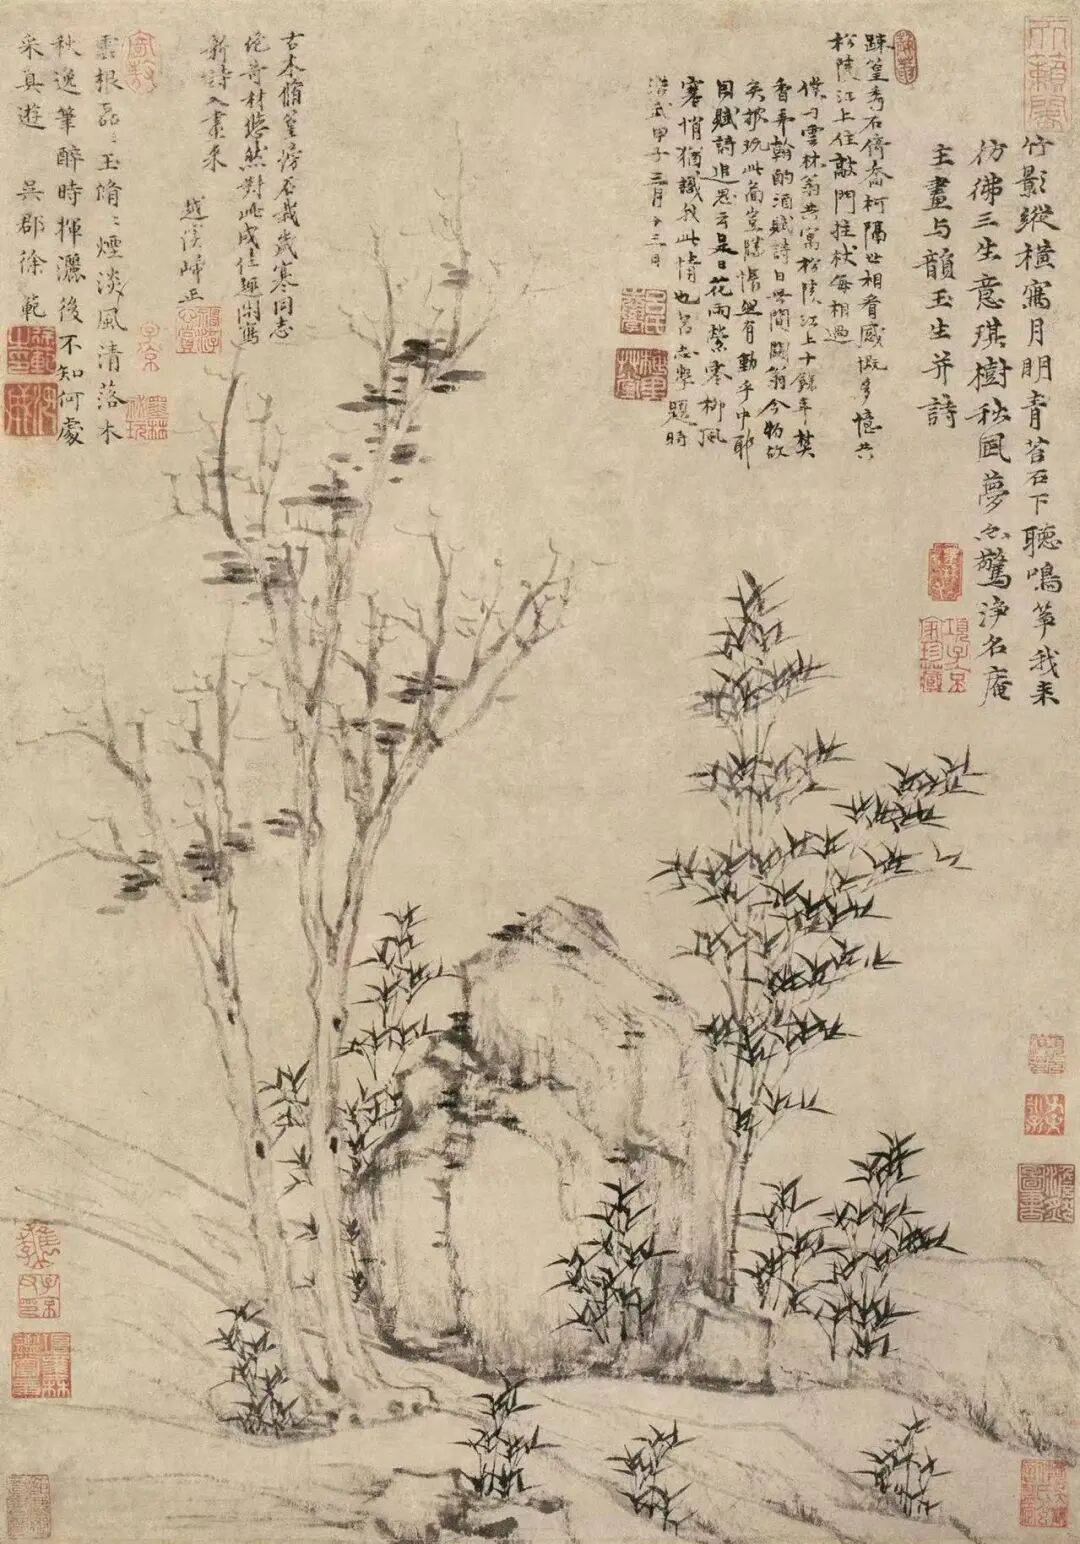 竹影縱橫寫月明青苔石下聽鳴箏我来
仿佛三生意琪樹秋風夢亦驚淨名庵
主畫与韻玉生并詩
踈篁秀石倚喬柯隔世相看感慨多憶共
松陵江上住敲門拄杖每相過
僕与雲林翁共寓松陵江上十餘年焚
香弄翰酌酒賦詩日無間闊翁今物故
矣披玩此啚豈勝悵然有動乎中耶
因賦詩追思云是日花雨紫寒柳風
寒悄猶識我此情也呂志學題時
洪武甲子三月十三日
古木脩篁滂石栽歲寒同志
佗奇材悠然對此成佳趣閒寫
新詩入畫來
越溪歸正
雲根磊磊玉脩脩煙淡風清落木
秋逸筆醉時揮灑後不知何處
采真遊 吳郡徐範
天籟閣
項子京家珍藏
子京